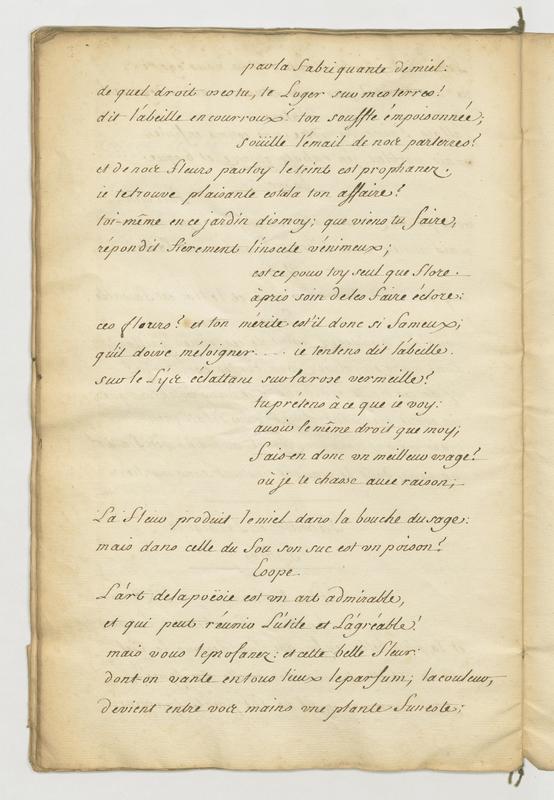 par la fabriquante de miel.
de quel droit viestu, te Loger sur mes terres?
dit l'abeille en courroux? ton souffle émpoisonnée;
soüille l'émail de nos parterres?
et de nos fleurs par toy le teint est prophanez.
ie te trouve plaisante est-la ton affaire?
toi-même en ce jardin dis moy; que viens tu faire,
répondit fierement l'insecte vénimeux;
est ce pour toy seul que flore.
à pris soin de les faire éclore:
ces fleurs? et ton mérite est'il donc si fameux;
qu'il doive méloigner.... ie tentens dit l'abeille.
sur le Lys éclattant sur la rose vermeille?
tu prétens à ce que ie voy:
avoir le même droit que moy;
fais-en donc un meilleur usage?
où je te chasse avec raison;
La fleur produit le miel dans la bouche du sage:
mais dans celle du fou son suc est un poison?
Esope.
L'art de la poësie est un art admirable,
et qui peut réunir L'útile et L'ágréable!
mais vous le profanez: et cette belle fleur:
dont on vante en tous lieux le parfum; la couleur,
devient entre vos mains une plante funeste;